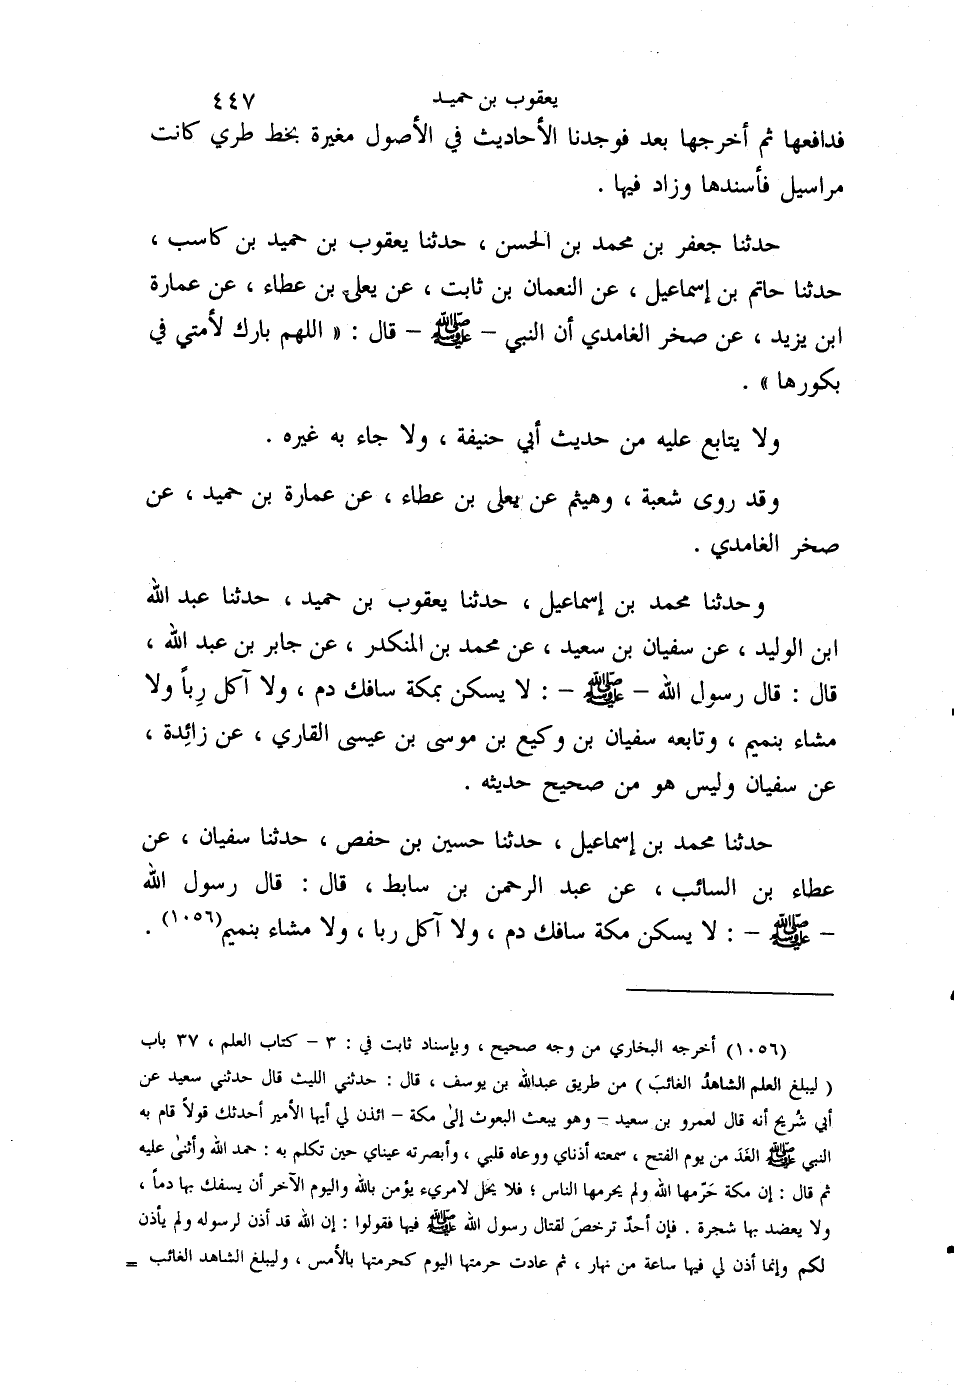 يعقوب بن حميـد ٤٤٧
فدافعها ثم أخرجها بعد فوجدنا الأحاديث في الأصول مغيرة بخط طري كانت
مراسيل فأسندها وزاد فيها .
حدثنا جعفر بن محمد بن الحسن ، حدثنا يعقوب بن حميد بن كاسب ،
حدثنا حاتم بن إسماعيل ، عن النعمان بن ثابت ، عن يعلى بن عطاء ، عن عمارة
ابن يزيد ، عن صخر الغامدي أن النبي - ﷺ - قال : « اللهم بارك لأمتي في
بكورها » .
ولا يتابع عليه من حديث أبي حنيفة ، ولا جاء به غيره .
وقد روى شعبة ، وهيثم عن يعلى بن عطاء ، عن عمارة بن حميد ، عن
صخر الغامدي .
وحدثنا محمد بن إسماعيل ، حدثنا يعقوب بن حميد ، حدثنا عبد الله
ابن الوليد ، عن سفيان بن سعيد ، عن محمد بن المنكدر ، عن جابر بن عبد الله ،
قال : قال رسول الله - ﷺ - : لا يسكن بمكة سافك دم ، ولا آكل رِباً ولا
مشاء بنميم ، وتابعه سفيان بن وكيع بن موسى بن عيسى القاري ، عن زائِدة ،
عن سفيان وليس هو من صحيح حديثه .
حدثنا محمد بن إسماعيل ، حدثنا حسين بن حفص ، حدثنا سفيان ، عن
عطاء بن السائب ، عن عبد الرحمن بن سابط ، قال : قال رسول الله
- ﷺ - : لا يسكن مكة سافك دم ، ولا آكل ربا ، ولا مشاء بنميم(١٠٥٦) .
(١٠٥٦) أخرجه البخاري من وجه صحيح ، وبإسناد ثابت في : ٣ - كتاب العلم ، ٣٧ باب
( ليبلغ العلم الشاهدُ الغائبَ ) من طريق عبدالله بن يوسف ، قال : حدثني الليث قال حدثني سعيد عن
أبي شُريح أنه قال لعمرو بن سعيد - وهو يبعث البعوث إلى مكة - ائذن لي أيها الأمير أحدثك قولاً قام به
النبي ﷺ الغَدَ من يوم الفتح ، سمعته أذناي ووعاه قلبي ، وأبصرته عيناي حين تكلم به : حمد الله وأثنى عليه
ثم قال : إن مكة حَرّمها الله ولم يحرمها الناس ؛ فلا يحل لامريء يؤمن بالله واليوم الآخر أن يسفك بها دماً ،
ولا يعضد بها شجرة . فإن أحدٌ ترخصَ لقتال رسول الله ﷺ فيها فقولوا : إن الله قد أذن لرسوله ولم يأذن
لكم وإنما أذن لي فيها ساعة من نهار ، ثم عادت حرمتها اليوم كحرمتها بالأمس ، وليبلغ الشاهد الغائب =